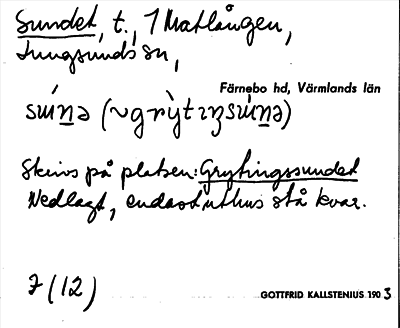 Sundet, t., 1 Matlången,
Lungsunds sn,
Färnebo hd, Värmlands län
suńṇə (~gry̆tıŋsuńṇə)
Skrivs på platsen: Grytingssundet
Nedlagt, endast uthus stå kvar.
7 (12)
GOTTFRID KALLSTENIUS 1903